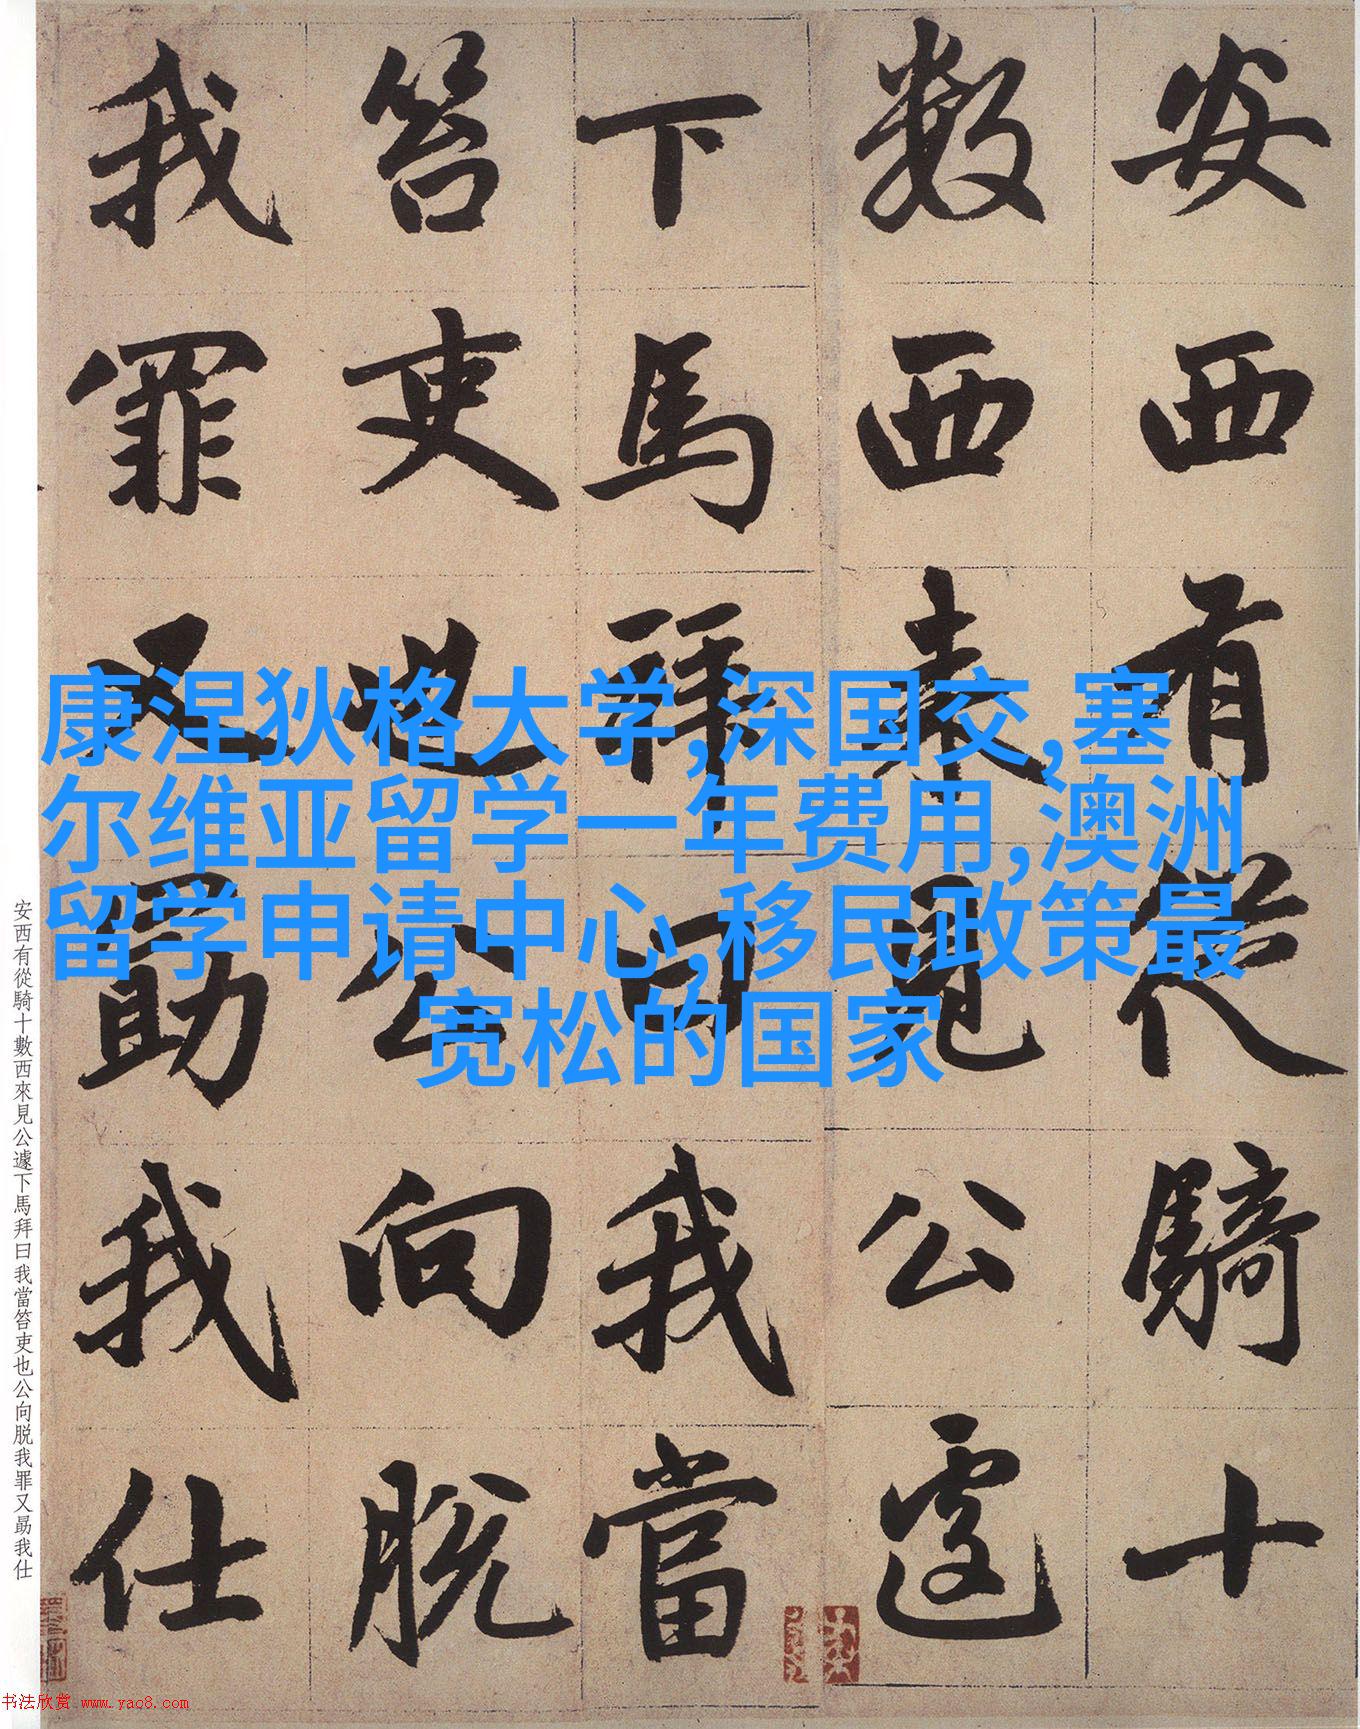 安西有從騎十
數西來見公遽
下馬拜曰我當
笞吏也公向脫
我罪又勗我仕
康涅狄格大学,深国交,塞
尔维亚留学一年费用,澳洲
留学申请中心,移民政策最
宽松的国家
安西有從騎十數西來見公遽下馬拜曰我當笞吏也公向脫我罪又勗我仕
书法欣赏 www.yac8.com